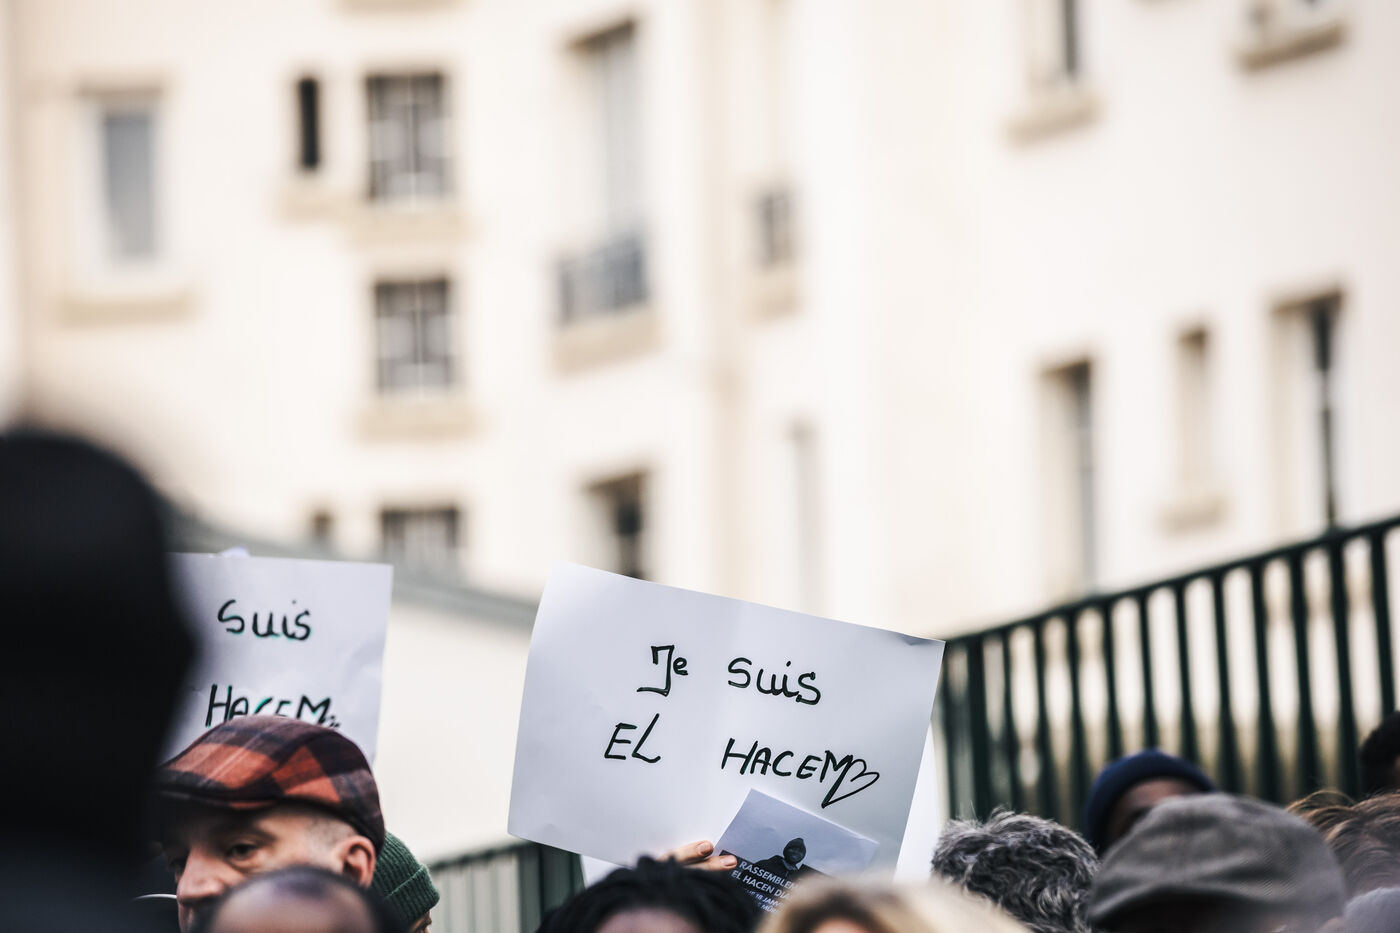 suis
HACEM
Je suis
EL HACEM
RASSEMBLEM
EL HACEN DIA
18 JANV